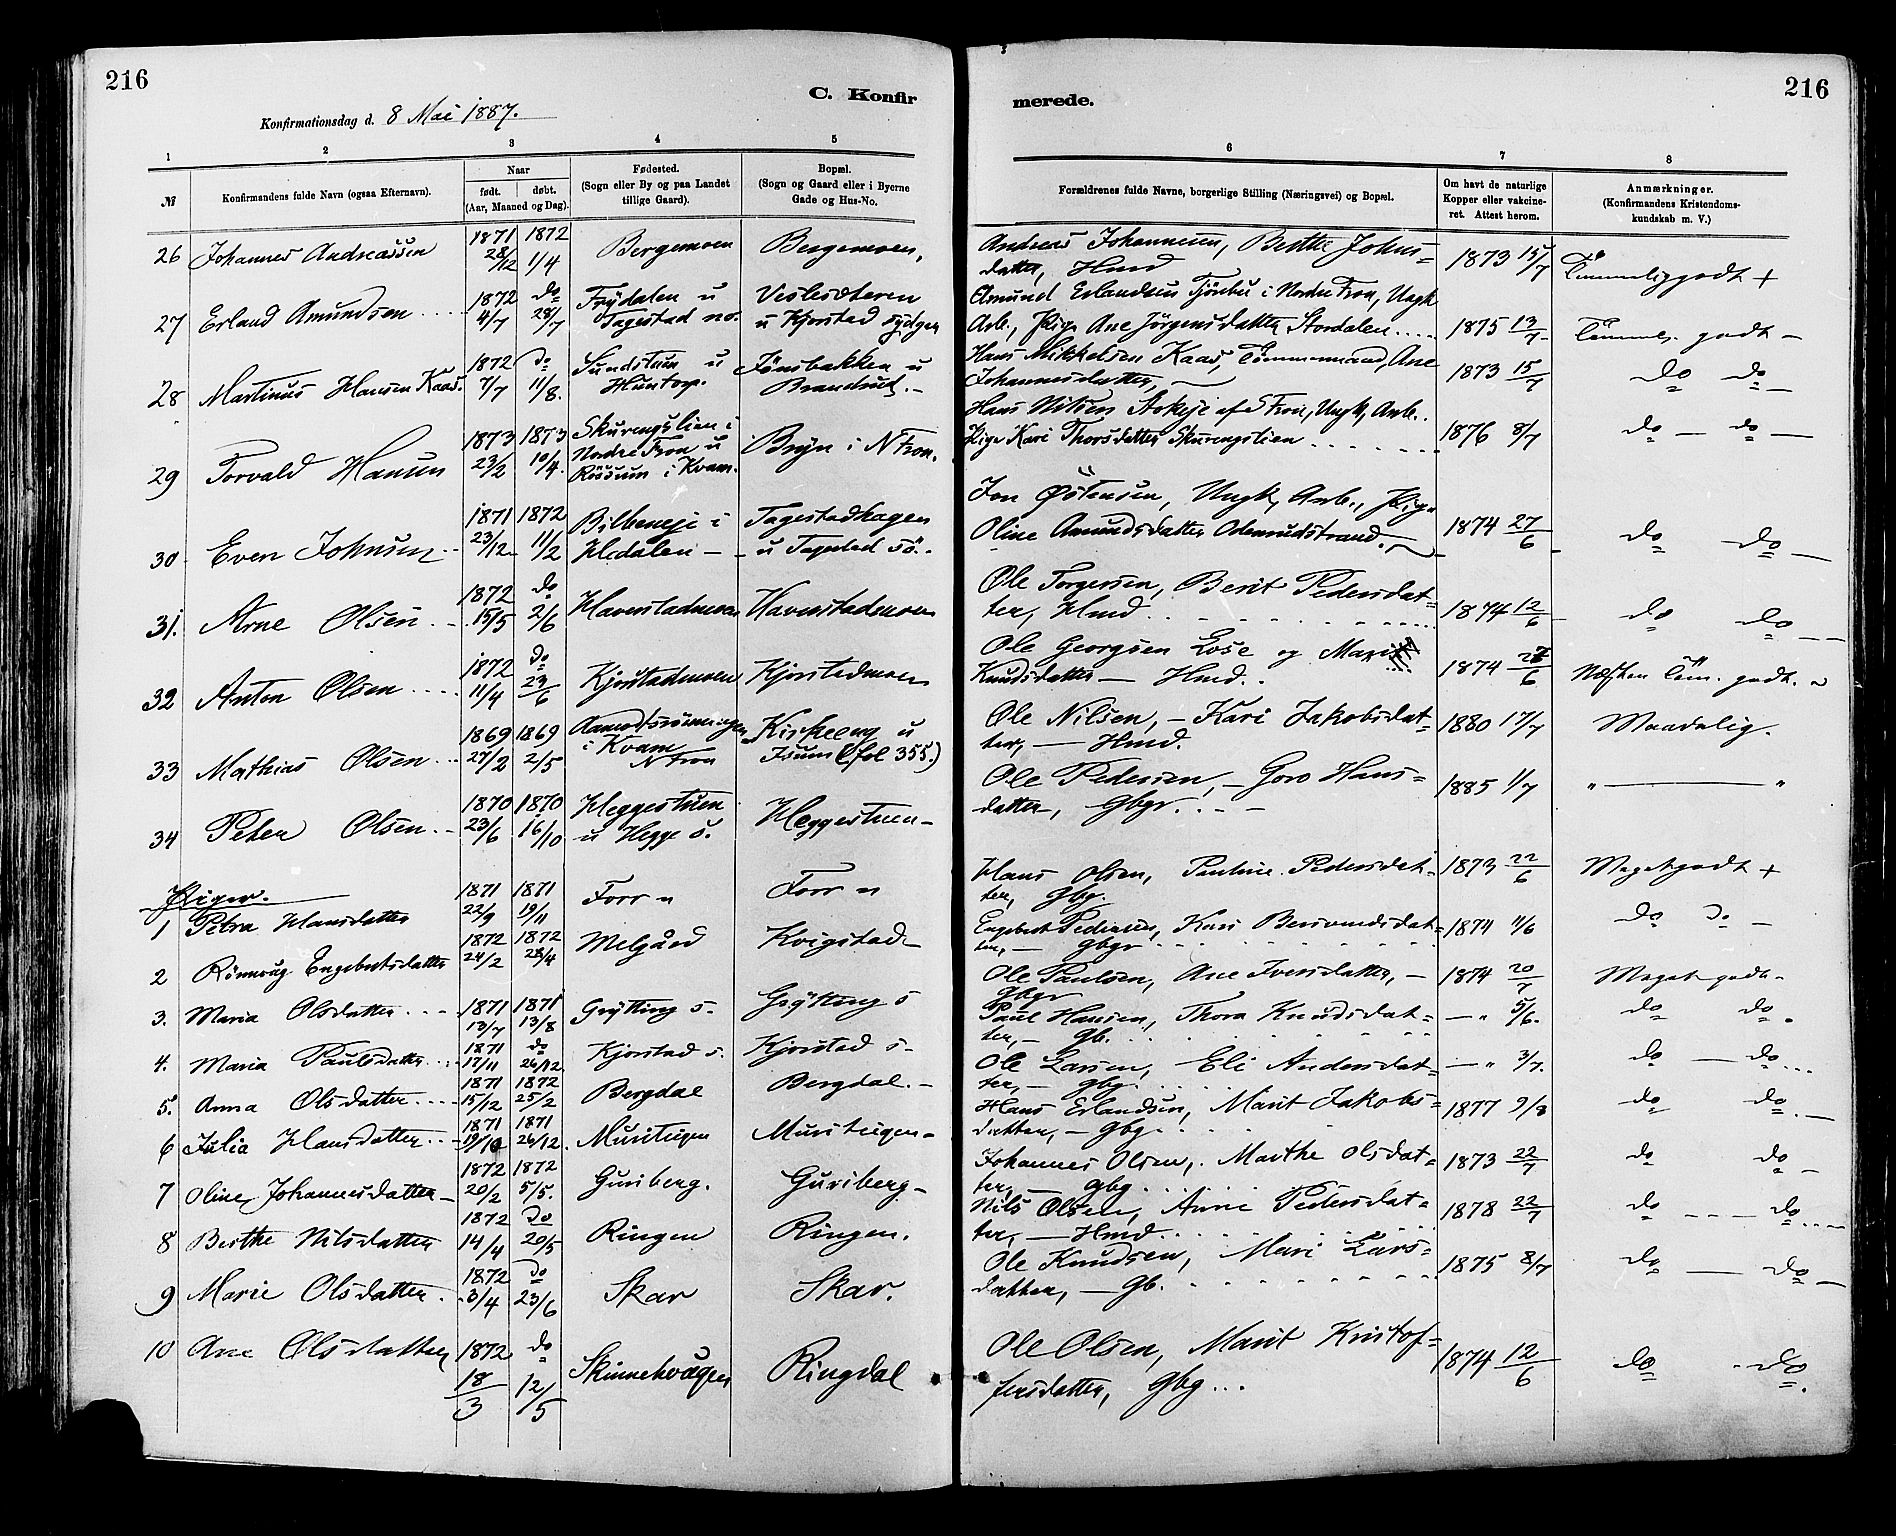 216
C. Konfir
Konfirmationsdag d. 8 Mai 1887.
1 2 3 4 5
№
Konfirmandens fulde Navn (ogsaa Efternavn).
Naar
født. døbt.
(Aar, Maaned og Dag).
Fødested.
(Sogn eller By og paa Landet
tillige Gaard).
Bopæl.
(Sogn og Gaard eller i Byerne
Gade og Hus-No.
26 Johannes Andreassen 1871 28/12 1872 1/4 Bergemoen Bergemoen,
27 Erland Amundsen 1872 4/7 do 28/7 Frydalen u Tagestad no. Veslesæteren u Kjorstad sydgen
28 Martinus Hansen Kaas. 1872 7/7 do 11/8. Sundstuen u Huntorp. Fønsbakken u Brandrud.-
29 Torvald Hansen 1873 23/2 1873 10/4. Skurengslien i Nordre Fron u Rössum i Kvam. Bryn i N Fron.
30 Even Johnsen 1871 23/12 1872 11/2 i Hedalen - Tagestadhagen u Tagestad sö..
31. Arne Olsen 1872 15/5 do 2/6 Haverstadmoen Haverstadmoen
32 Anton Olsen 1872 11/4 do 23/6 Kjorstadmoen Kjorstadmoen
33 Mathias Olsen 1869 27/2 1869 2/5 i Kvam N Fron Kirkeeng u Isum (fol 355.)
34 Peter Olsen 1870 23/6 1870 16/10 Heggestuen u Hegge s. Heggestuen-
Piger.
1 Petra Hansdatter 1871 22/9 1871 19/11 Forr n Forr n
2 Rönnoug Engebretsdatter 1872 24/2 1872 28/4 Melgård Kvigstad-
3. Maria Olsdatter 1871 13/7 1871 13/8 Grytting s- Grytting s
4. Maria Paulsdatter 1871 17/11 do 26/12 Kjorstad s. Kjorstad s-
5. Anna Olsdatter 1871 15/12 1872 25/2 Bergdal Bergdal.-
6 Julia Hansdatter 1871 19/10 1871 26/12. Muriteigen Muriteigen-
7 Oline Johannesdatter- 1872 20/2 1872 5/5. Guriberg. Guriberg-
8 Berthe Nilsdatter 1872 14/4 do 20/5 Ringen Ringen.
9 Marie Olsdatter. 1872 3/4 do 23/6 Skar Skar.
10 Ane Olsdatter 1872 18/3 do 12/5 Ringdal
216
merede.
6 7 8
Forældrenes fulde Navne, borgerlige Stilling (Næringsvei) og Bopæl.
Om havt de naturlige
Kopper eller vakcine-
ret. Attest herom.
Anmærkninger.
(Konfirmandens Kristendoms-
kundskab m. V.)
Andreas Johannesen, Berthe Johns=
datter, Hmd 1873 15/7 Temmeliggodt +
Amund Erlandsen Tjönbu i Nordre Fron, Ungk
Arb., Pige Ane Jörgensdatter Stordalen.... 1875 13/7 Temmel. godt -
Hans Mikkelsen Kaas, Tömmermand, Ane
Johannesdatter, 1873 15/7 do do -
Hans Nilsen af S Fron, Ungk, Arb..
Pige Kari Thorsdatter Skurengslien 1876 8/7 do - do -
Jon Östensen, Ungk, Arb., Pige
Oline Amundsdatter Odenrudstrand. 1874 27/6 do do -
Ole Torgersen, Berit Pedersdat=
ter, Hmd. 1874 12/6 do do -
Ole Georgsen Lose og Marit
Knudsdatter - Hmd. 1874 27/6 Næsten Tem. godt.
Ole Nilsen, - Kari Jakobsdat=
ter, - Hmd. 1880 17/7 Maadelig.
Ole Pedersen, - Goro Hans=
datter-, Gbgr. 1885 1/7 " - "
Hans Olsen, Pauline Pedersdat=
ter, Gbg. 1873 22/6 Megetgodt +
Engebret Pedersen, Kari Bersvendsdat=
ter, - Gbgr 1874 11/6 do do -
Ole Paulsen, Ane Iversdatter, -
Gbgr 1874 20/7 Meget godt-
Paul Hansen, Thora Knudsdat=
ter, - Gb. - " 5/6. do do.
Ole Larsen, Eli Andersdat=
ter, - Gbg - " 3/7. do - do...
Hans Erlandsen, Marit Jakobs=
datter, - Gbg 1877 9/8 do do. -
Johannes Olsen, Marthe Olsdat=
ter, - Gbg 1873 22/7 do do -
Nils Olsen, Anne Pedersdat=
ter, - Hmd. 1878 22/7 do - - - do....
Ole Knudsen, Mari Lars=
datter, - Gb. 1875 8/7 do - do -
Ole Olsen, Marit Kristof=
fersdatter, Gbg ... 1874 12/6 do do.